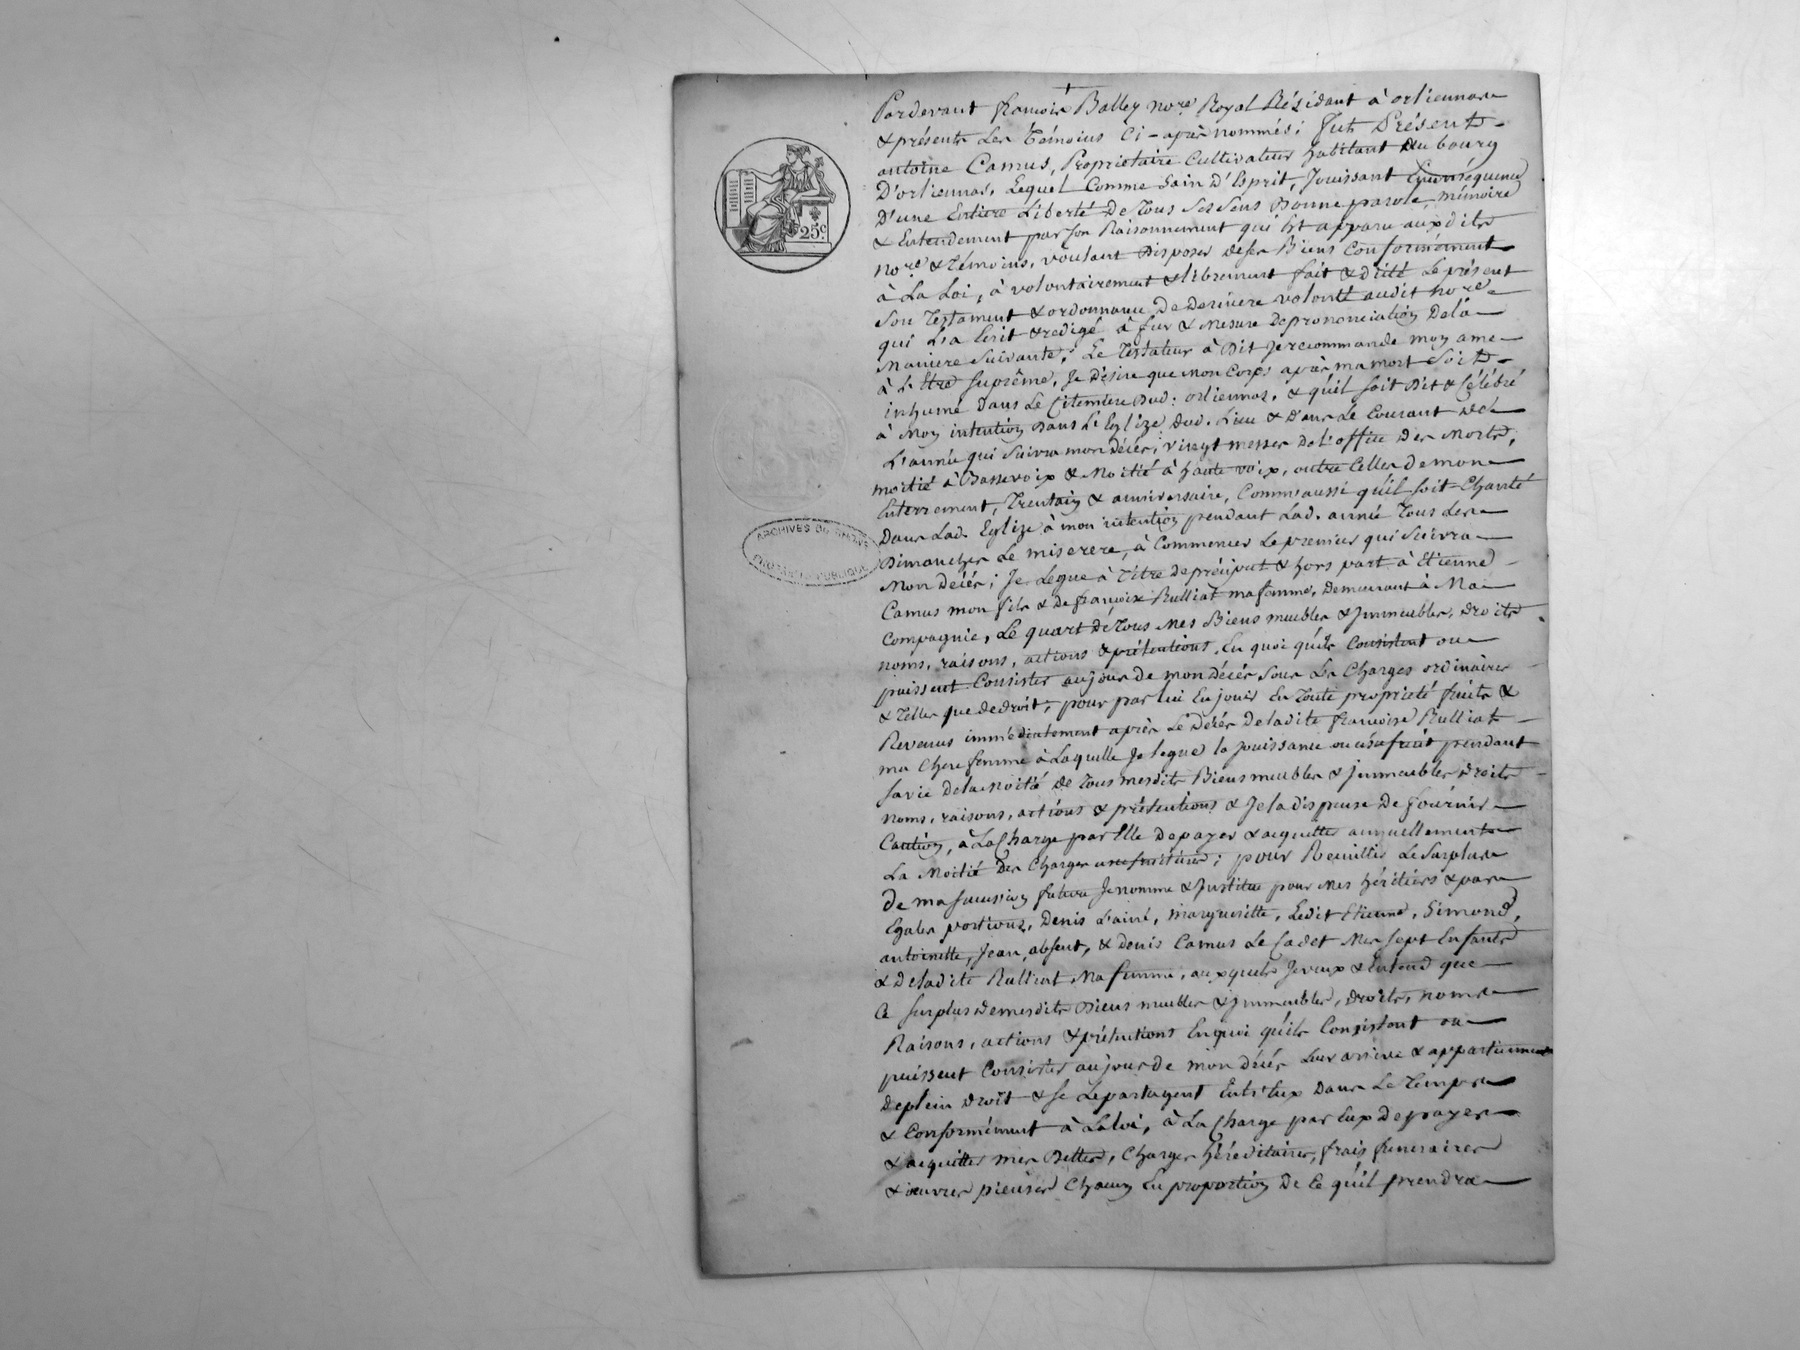 Pardevant françois Balley no.re Royal Résidant à orliennas
& présents Les Témoins Ci-après nommés; Fut Présent
antoine Camus, Propriétaire Cultivateur habitant au bourg
D'orliennas, Lequel Comme Sain D'Esprit, Jouissant Conséquence
D'une Entiere Liberté De Tous Ses Sens Bonne parole, mémoire
& Entendement par Son Raisonnement qui Est apparu auxdits
no.re & Témoins, voulant Disposer de Ses Biens Conformément
à La Loi, à volontairement & librement fait & dicté Le présent
Son Testament & ordonnance De Derniere volonté audit no.re
qui L'a Ecrit & redigé à fur & Mesure De prononciation De la
Maniere Suivante; Le Testateur à Dit Je recommande mon ame
à L'Etre Suprême, Je Désire que Mon Corps après ma mort Soit
inhumé Dans Le Cimetiere Dud: orliennas, & qu'il Soit Dit & Célébré
à Mon intention Dans L'Eglize Dud. Lieu & Dans Le Courant de
L'année qui Suivra mon Décès, vingt messes De L'office Des Morts,
moitié à Basse voix & Moitié à haute voix, outre Celles De mon
Enterrement, Trentain & anniversaire, Comme aussi qu'il Soit Chanté
Dans Lad. Eglize à mon intention pendant Lad. année Tous Les
Dimanches Le miserere, à Commencer Le premier qui Suivra
Mon Décès; Je Legue à Titre De préciput & hors part à Etienne
Camus mon fils & De françoise Rulliat ma femme, Demeurant à Ma
Compagnie, Le quart De Tous Mes Biens meubles & Immeubles, Droits
noms, raisons, actions & prétentions, En quoi qu'ils Consistent ou
puissent Consister au jour de mon Décès Sous Les Charges ordinaires
& Telles que de droit, pour par lui En jouir En Toute propriété fruits &
Revenus immédiatement après Le Décès De ladite françoise Rulliat
ma Chere femme à Laquelle Je legue la Jouissance ou usufruit pendant
Sa vie De la Moitié De Tous mesdits Biens meubles & Immeubles Droits
noms, raisons, actions & prétentions & Je la dispense De fournir
Caution, à La Charge par Elle De payer & acquitter annuellement
La Moitié Des Charges usufruitieres; pour Recueillir Le Surplus
De ma Succession future Je nomme & Institue pour Mes héritiers & par
Egales portions, Denis L'ainé, Marguerite, Ledit Etienne, Simond,
antoinette, Jean, absent, & Denis Camus Le Cadet Mes Sept Enfants
& De ladite Rulliat Ma femme, auxquels Je veux & Entend que
Ce Surplus De mesdits Biens meubles & Immeubles, Droits, noms
Raisons, actions & prétentions En quoi qu'ils Consistent ou
puissent Consister au jour de mon Décès Leur arrive & appartiennent
De plein Droit & Se Le partagent Entr'Eux Dans Le Temps
& Conformément à La Loi, à La Charge par Eux De payer
& acquitter Mes Dettes, Charges héréditaires, frais funeraires
& œuvres pieuses Chacun En proportion De Ce qu'il prendra
25c
ARCHIVES DU RHONE